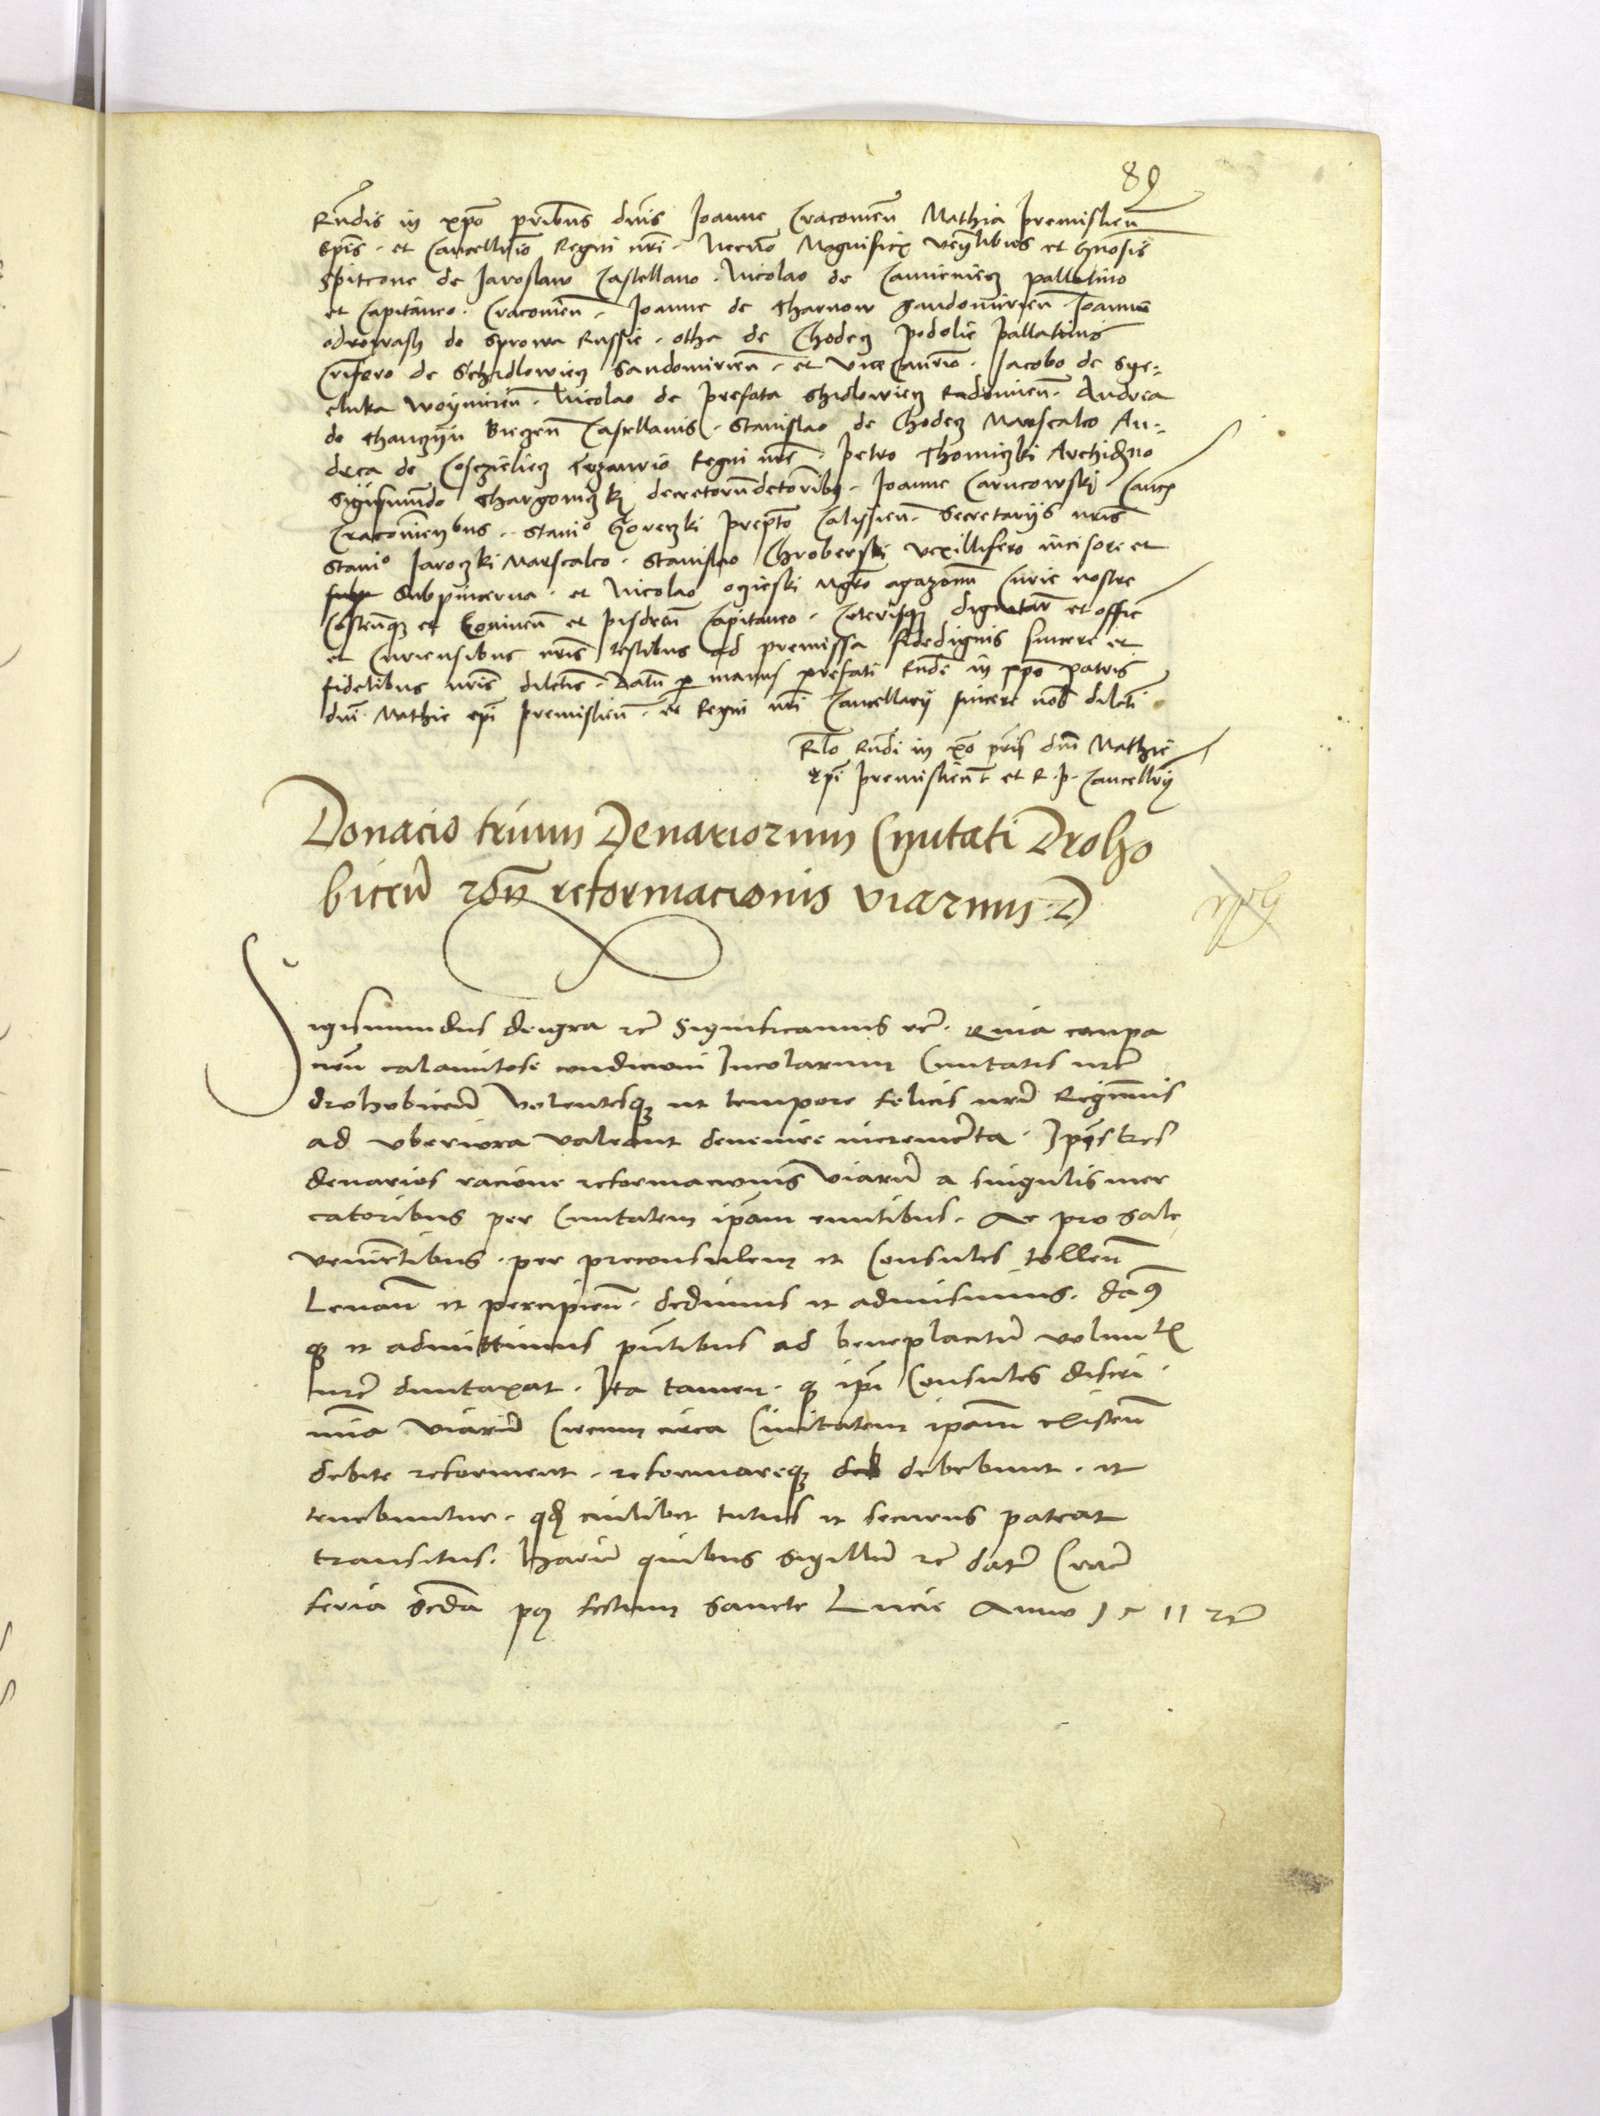 89
Rndis in xpo pribus dnis Joanne Cracovien Mathia Premislien
Epis · et Cancellario Regni nri · Necno Magnificis venlibus et Gnosis
Spitcone de Jaroslaw Castellano · Nicolao de Camieniecz pallatino
et Capitaneo · Cracovien · Joanne de Tharnow Sandomirien · Joanne
odrowasch de Sprowa Russie · otha de Chodecz Podolie Pallatinis
Cristfero de Schidlowiecz Sandomirien · et Vice Cancrio · Jacobo de Sye-
cluka Woynicien · Nicolao de Prefata Shidlowiecz Radomien · Andrea
de Thanczyn Biecen Castellanis · Stanislao de Chodecz Marscalco An-
drea de Cosczieliecz Tezaurio Regni nre · Petro Thomiczki Archidno
Sigismundo Thargowiczki decretorum doctoribus · Joanne Carncowski · Canc
Cracovienbus · Stanio Goreczki Prepto Calissien · Secretariis nris
Stanio Jaroczki Marscalco · Stanislao Chroberski vexillifero incisore et
Subpincerna · et Nicolao oczieski Mgro agazonum Curie nostre
Costenque et Coninen et Pisdren Capitaneo · Ceterisque dignitar et offic
et Curiensibus nris testibus ad premissa fidedignis sincere et
fidelibus nris dilectis · Datum per manus prefati Rndi in xpo patris
dni Mathie epi Premislien · et Regni nri Cancellarii sincere nob dilecti
Rlo Rndi in xpo pris dni Mathie
epi Premislien et R · P · Cancellrii
Donacio trium Denariorum Civitati Droho
bicen rone reformacionis viarum
Sigismundus dei gra etc Significamus etc · Quia
calamitose condicioni Incolarum Civitatis nre
drohobicen Volentesque ut tempore felicis nri Regiminis
ad uberiora valeant devenire incrementa · Ipsis tres
denarios racione reformacionis viarum a singulis mer
catoribus per Civitatem ipsam euntibus · Ac pro sale
venientibus · per preconsulem et Consules tollen
Levan et percipien · dedimus et admisimus · Dam9
que et admittimus pntibus ad beneplacitum volunt
nre duntaxat · Ita tamen · quod ipsi Consules discri
mina viarum Circumcirca Civitatem ipsam existen
debite reforment · reformareque deb debebunt · et
tenebuntur · quod cuilibet tutus et securus pateat
transitus · Harum quibus Sigillum etc datum Crac
feria Scda post festum Sancte Lucie Anno 1511 etc